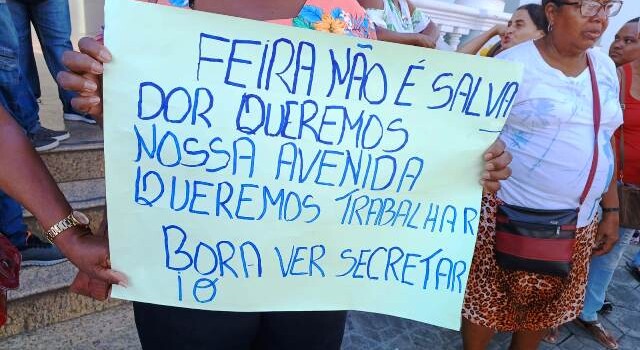 FEIRA NÃO É SALVA
DOR QUEREMOS
NOSSA AVENIDA
QUEREMOS TRABALHAR
BORA VER SECRETAR
IO